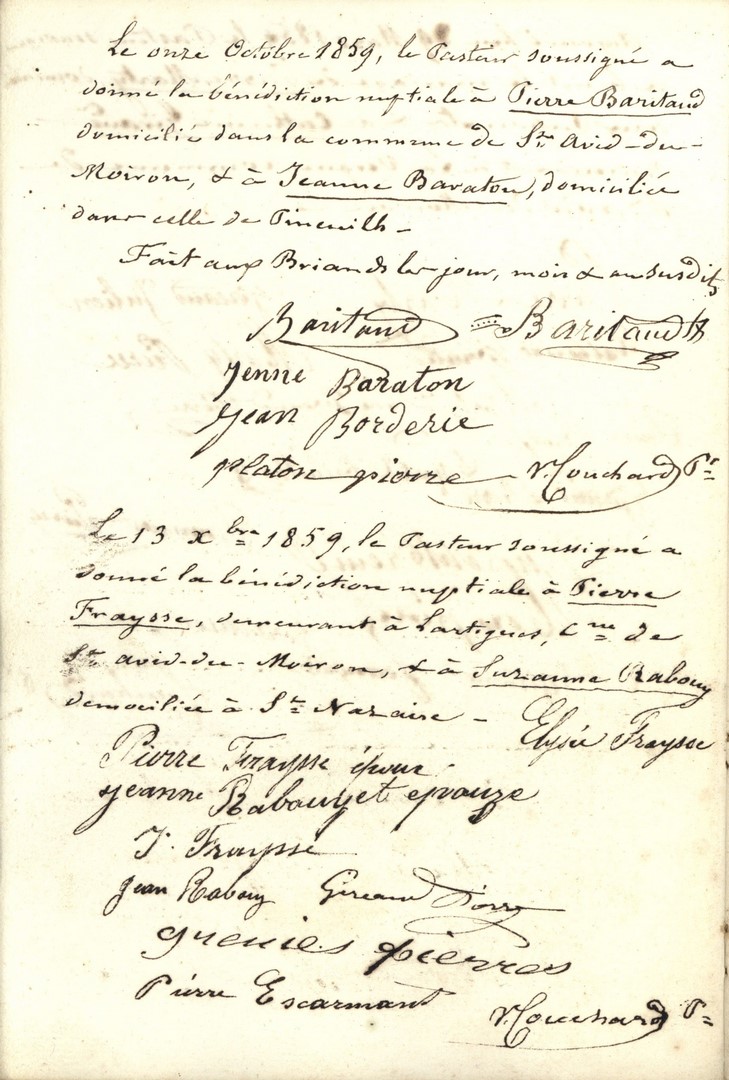 Le onze Octobre 1859, le Pasteur soussigné a
donné la bénédiction nuptiale à Pierre Baritaud
domicilié dans la commune de Ste. Avid-du-
Moiron, & à Jeanne Baraton, domiciliée
dans celle de Pineuilh -
Fait aux Briands les jour, mois & an susdits
Baritaud = Baritaud
Jenne Baraton
Jean Borderie
platon pierre V. Couchard Pr
Le 13 xbre 1859, le Pasteur soussigné a
donné la bénédiction nuptiale à Pierre
Fraysse, demeurant à Lartigues, Cne de
St avid-du-Moiron, & à Suzanne Rabouy
domociliée à St Nazaire - Elysée Fraysse
Pierre Fraysse époux
jeanne Rabouyet epouze
J. Fraysse
jean Rabouy Gireaud
grenies pierres
Pierre Escarmant
V. Couchard P.